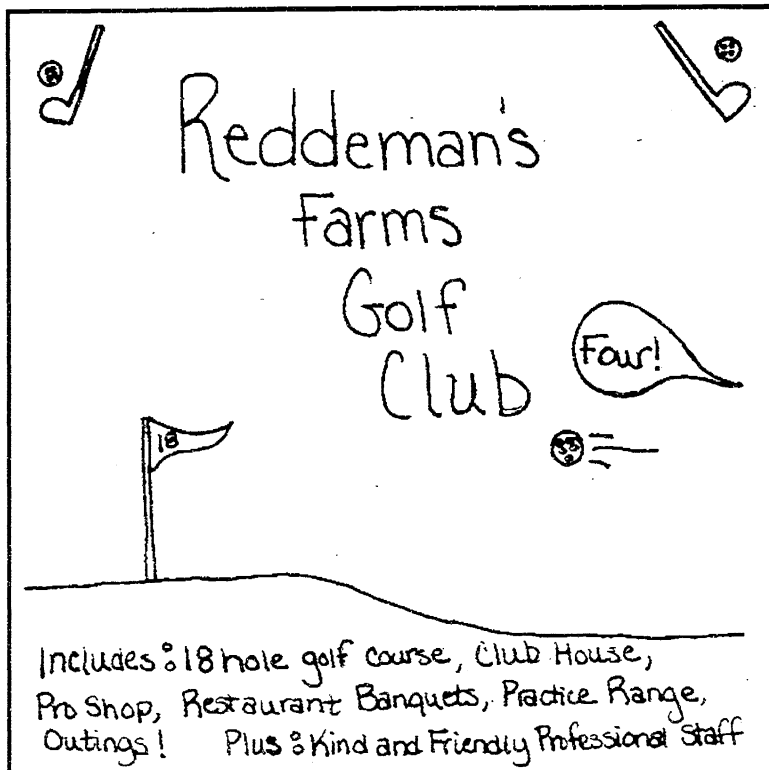 Reddeman's
Farms
Golf
Club
Four!
18
Includes: 18 hole golf course, Club House,
Pro Shop, Restaurant Banquets, Practice Range,
Outings! Plus: Kind and Friendly Professional Staff